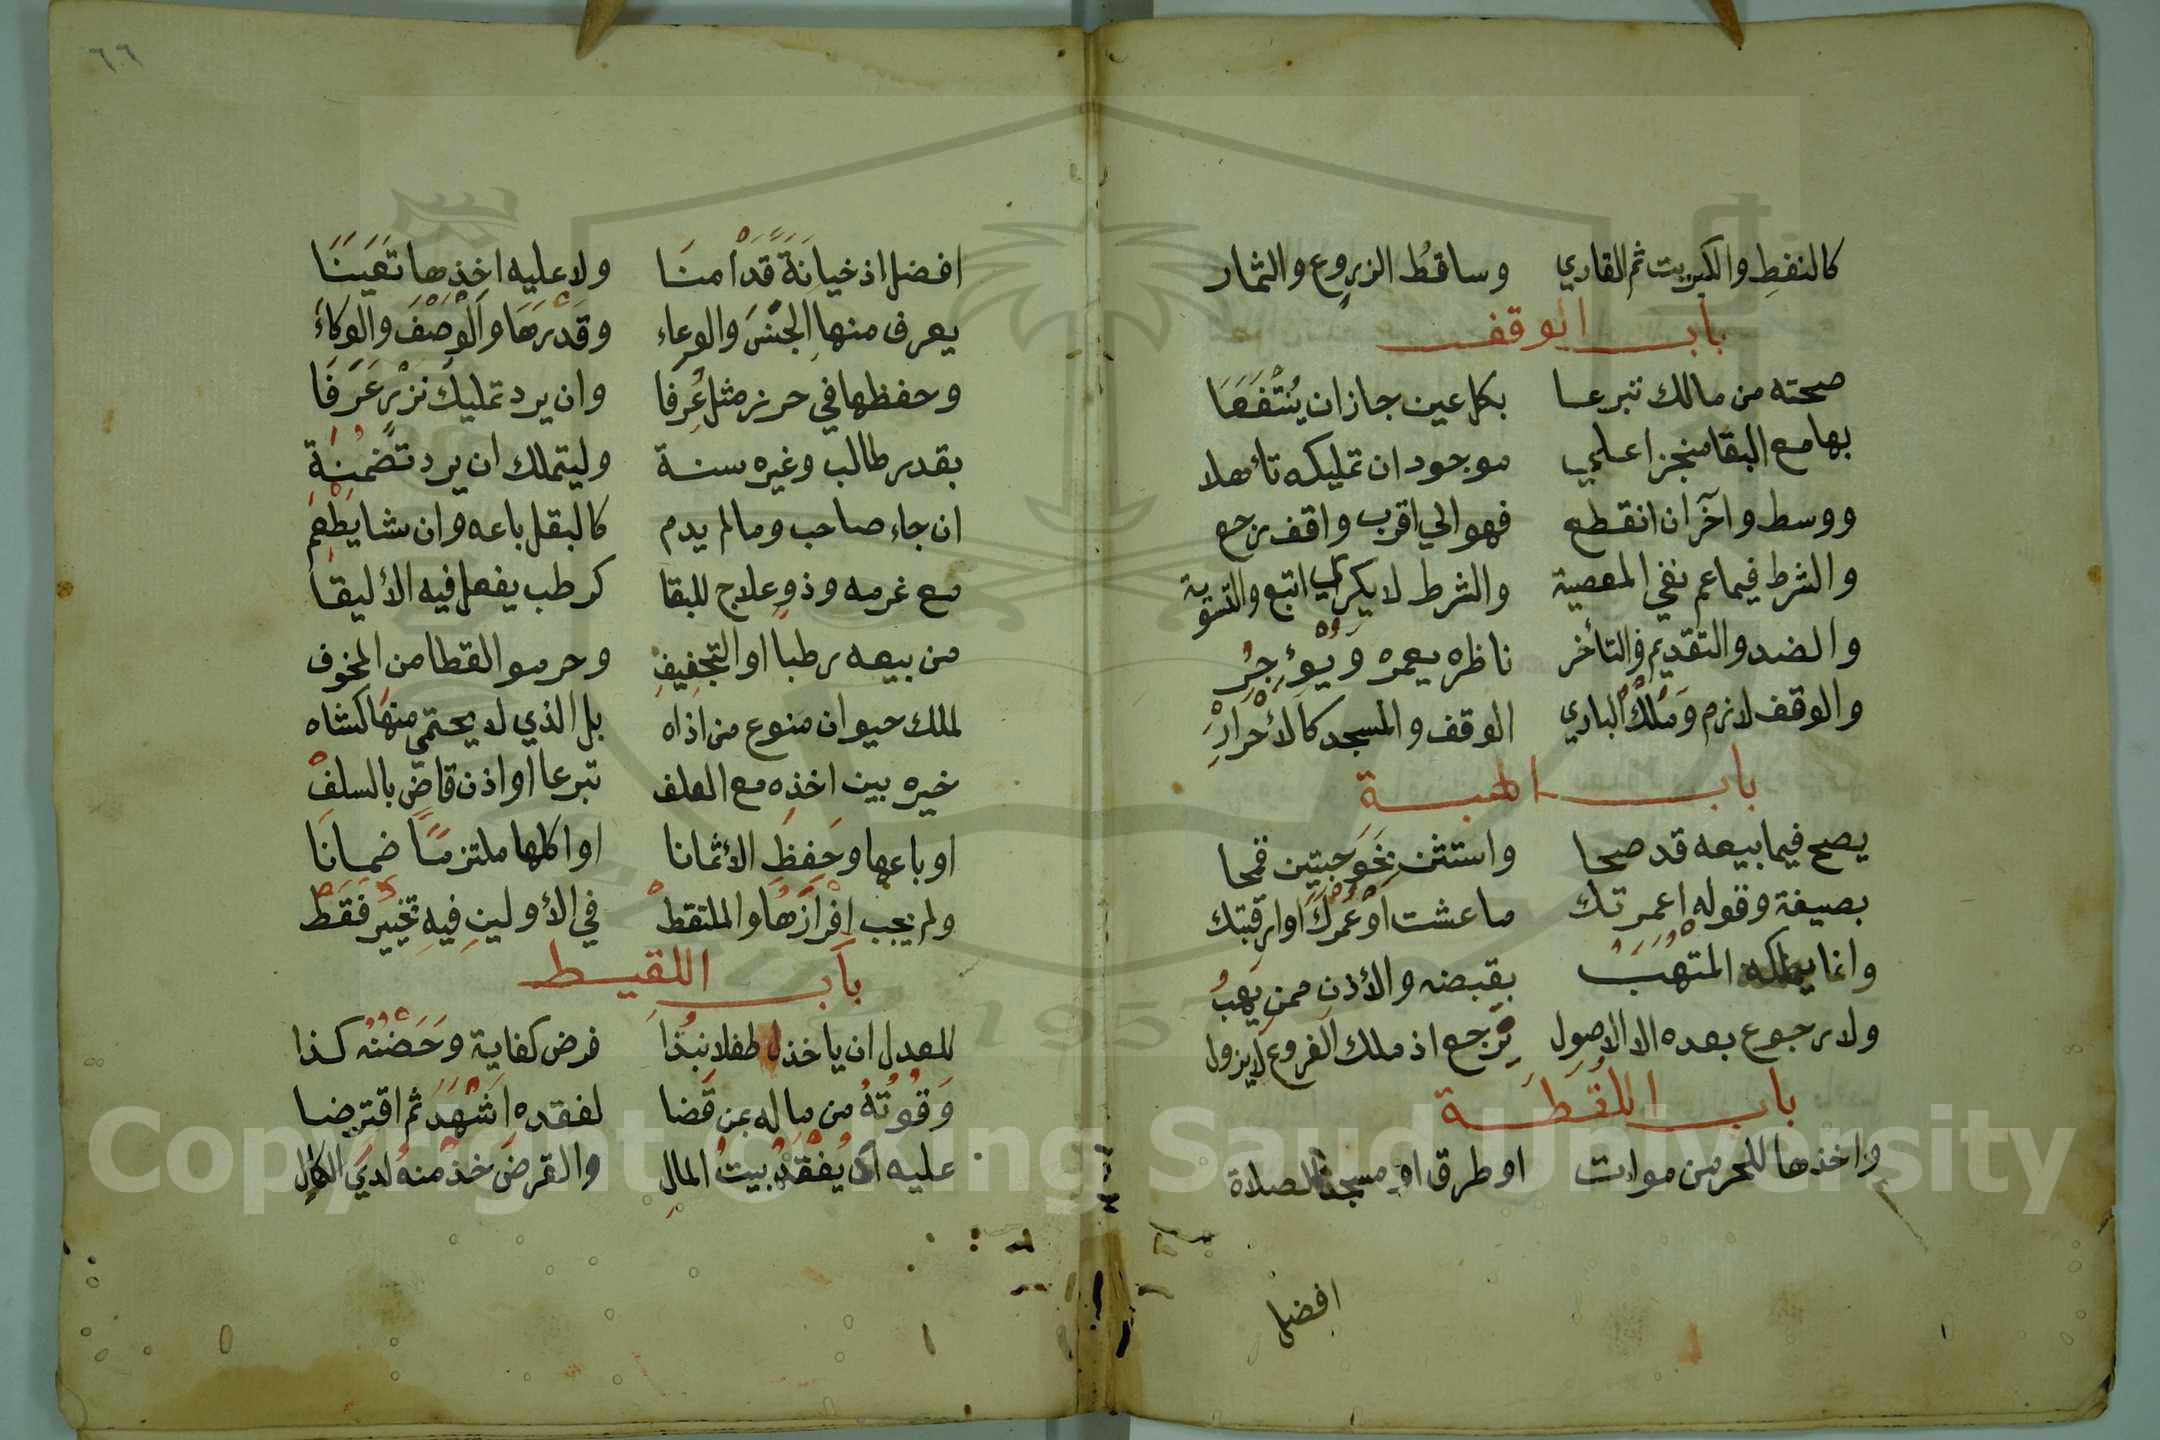 كالنفطِ والكبريت ثم القاري وساقطُ الزروع والثمار
باب الوقف
صحته من مالك تبرعا بكل عين جاز ان يُنْتَفَعَا
بها مع البقا منجزا على موجود ان تمليكه تأهلا
ووسط وآخر ان انقطع فهو الي اقرب واقف رجع
والشرط فيما عم نفي المعصية والشرط لا يكري اتبع والتسوية
والضد والتقديم والتأخر ناظره يعمره وَيُؤجِرُ
والوقف لازم وَمِلْكُ الباري الوقف والمسجد كالأحْرَارِ
باب الهبة
يصح فيما بيعه قد صحا واستثن نَحْوَ حبتين قمحا
بصيغة وقوله اعمرتك ما عشت أوْ عُمْرَكَ او ارقبتك
وانما يملكه المتهِبُ بقبضه والأذن ممن يَهَبُ
ولا رجوع بعده الا الاصول ترجع اذ ملك الفروع لا يزول
باب اللُّقَطَة
واخذها للحر من موات او طرق او مسجد الصلاة
افضل
٦٦
افضل اذ خيانَةً قَدْ أمنَا ولا عليه اخذها تَعَيَّنَا
يعرف منها الجنْسَ والوعاء وقَدْرَهَا والْوَصْفَ والوكاءَ
وحفظها في حرز مثل عُرِفَا وان يرد تمليك نَزْرٍ عَرَّفَا
بقدر طالب وغيره سنة وليتملك ان يرد تضمنُهْ
ان جاء صاحب وما لم يدم كالبقل باعه وان شا يَطْعَمِ
مع غرمه وذو علاج للبقا كرطب يفعل فيه الأليقا
من بيعه رطبا او التجفيف وحرموا لقطا من المخوف
لملك حيوان منوع من اذاه بل الذي لا يحتمي منها كشاه
خيره بين اخذه مع العلف تبرعا او اذن قاض بالسلفْ
او باعها وحَفِظَ الأثمانا او اكلها ملتزمًا ضمانا
ولم يجب إفْرَازُهَا والملتقطْ في الأولين فيه تخييرٌ فَقَطْ
باب اللقيط
للعدل ان ياخذ طفلا نُبِذَا فرض كفاية وَحَضْنُهُ كذا
وَقُوتُهُ من ماله بمن قَضَا لفقده اشْهَدَ ثم اقترضا
عليه اذ يُفْقَدُ بيتُ المالِ والقرضَ خذْ منه لدي الكمال